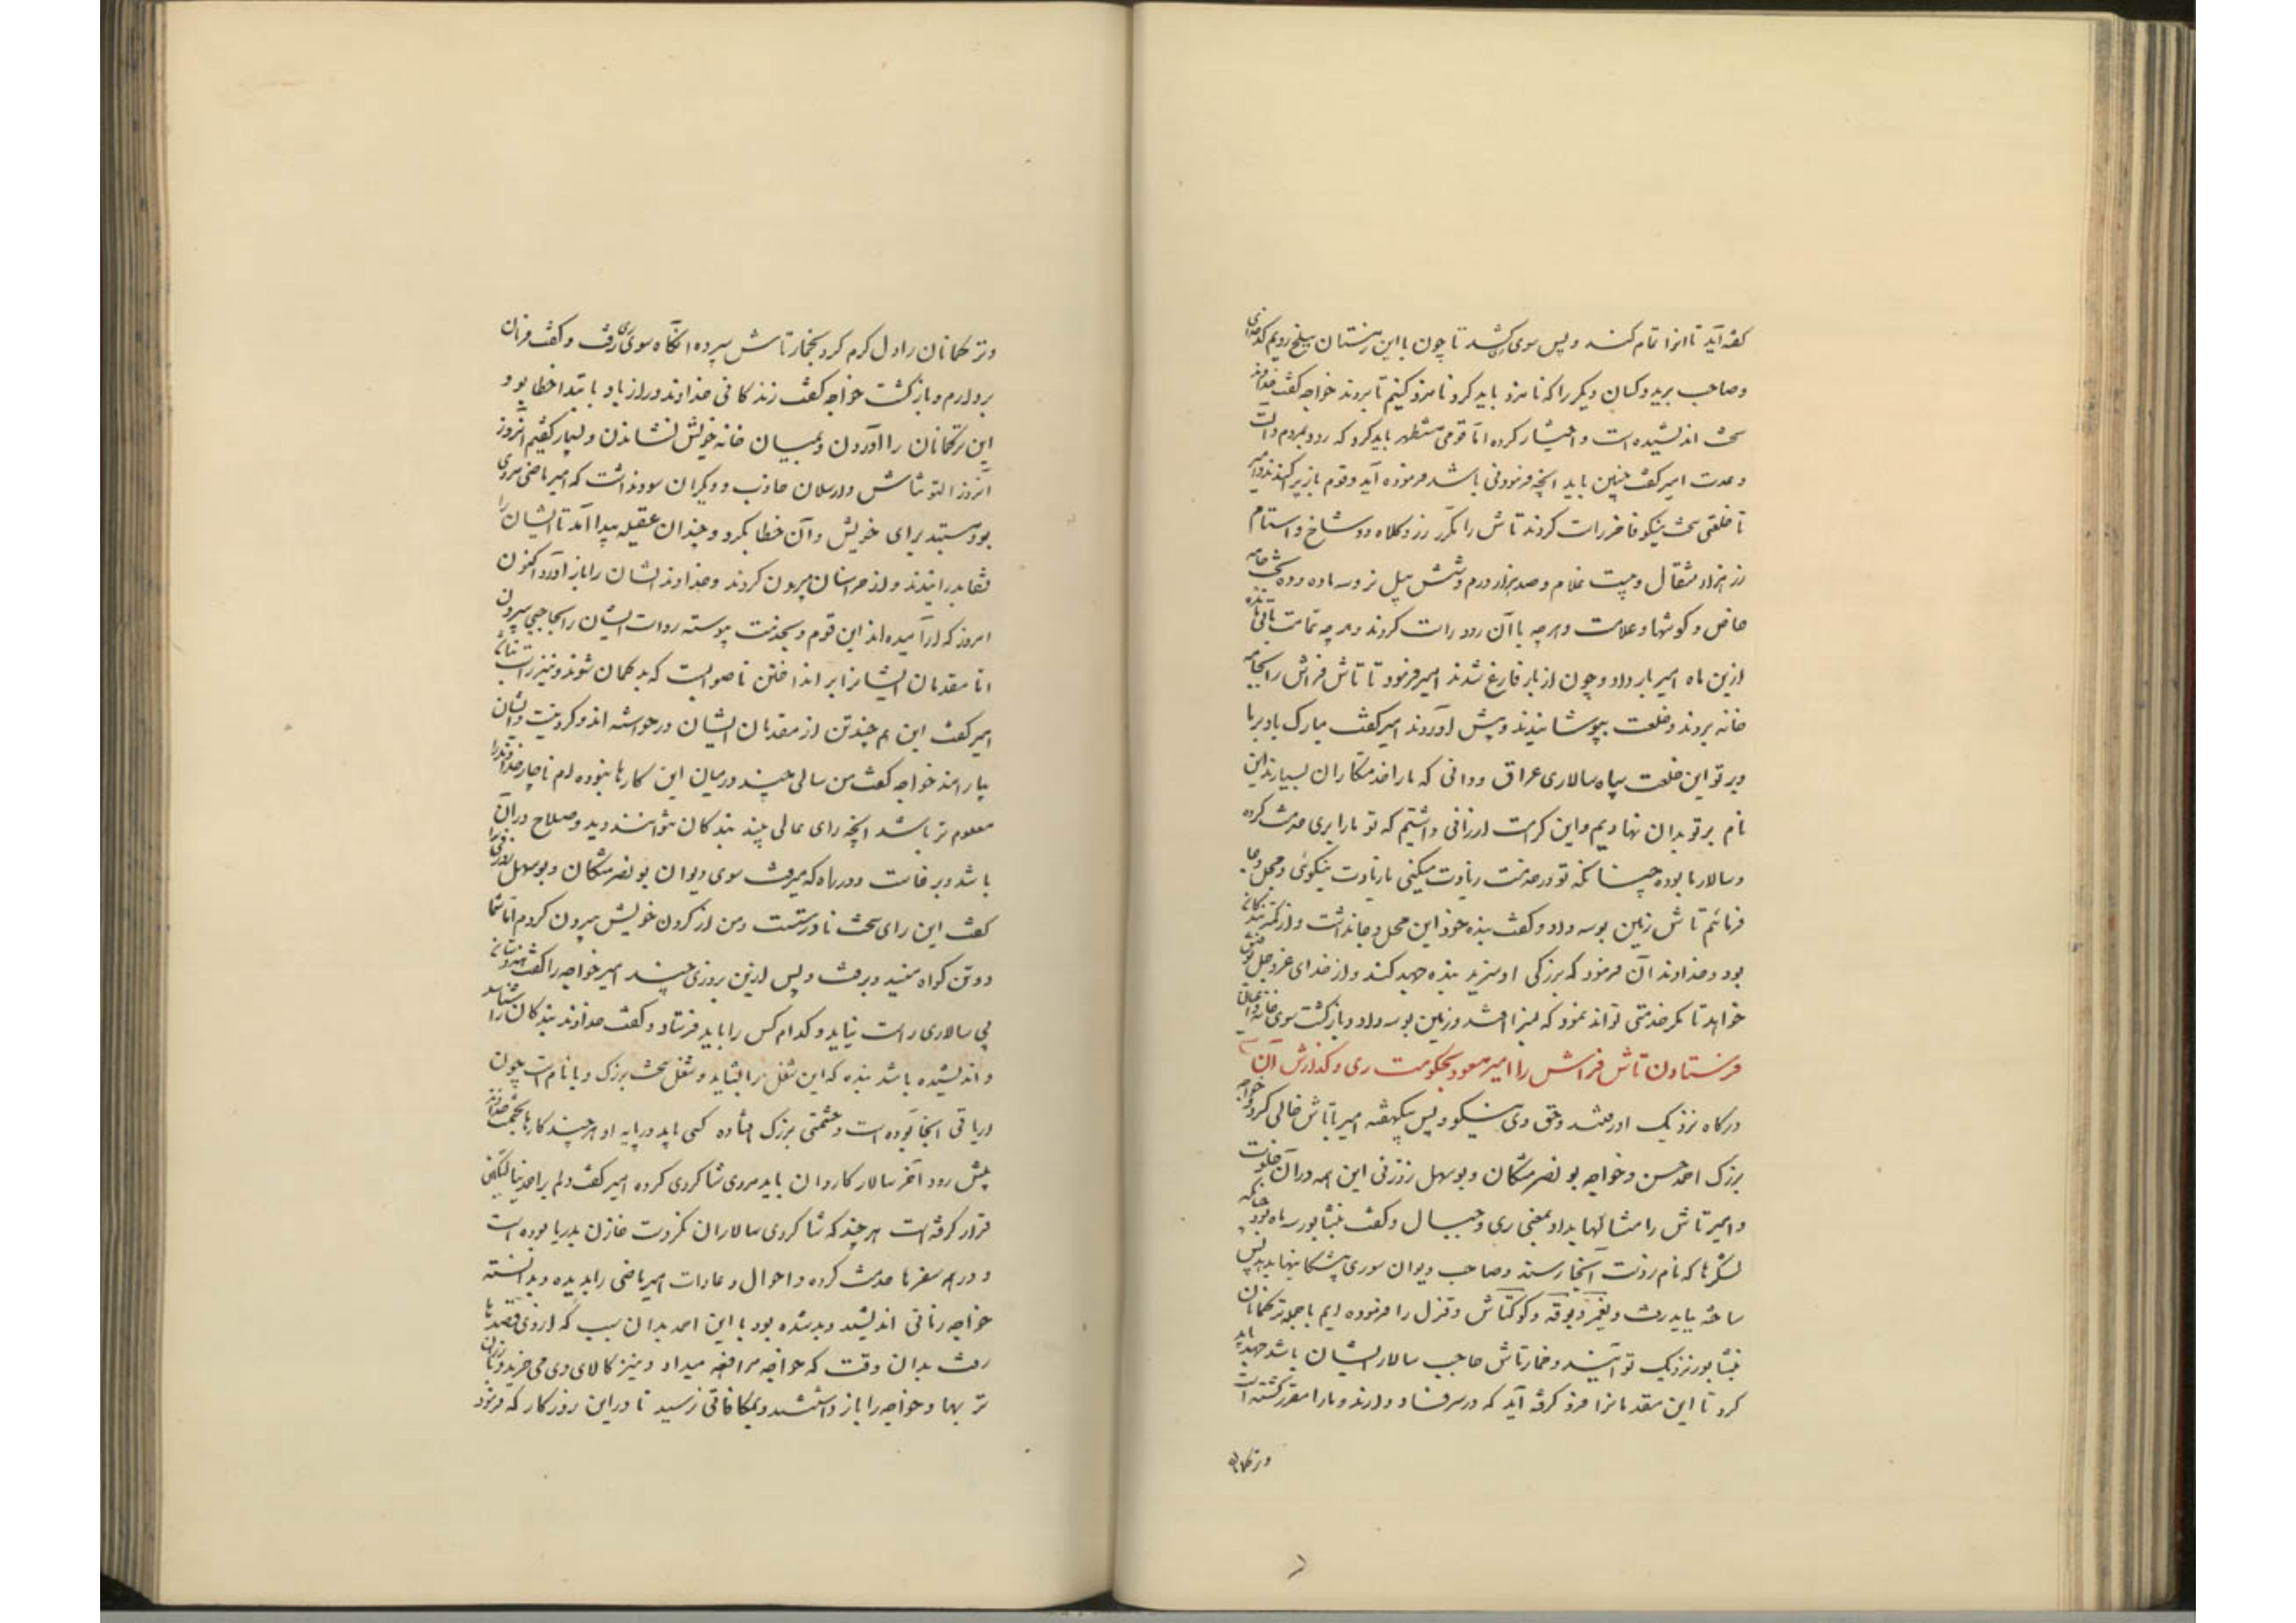 گفته آید تا آنرا تمام کنند و پس سوی ری کشد تا چون با این زمستان ببلخ رویم کدخدای
و صاحب برید و کسان دیگر را که نامزد باید کرد نامزد کنیم تا بروند خواجه گفت خداوند
سخت اندیشیده است و اختیار کرده اما قومی مستظهر باید کرد که رود بمردم و آلت
و عدت امیر گفت چنین باید آنچه فرمودنی باشد فرموده آید و قوم بازپراکندند و امیر
تا خلعتی سخت نیکو فاخر راست کردند تاش را کمر زر و کلاه دو شاخ و استام
زر هزار مثقال و بیست غلام و صد هزار درم و شش پیل نر و سه ماده و ده تخت جامه
خاص و کوسها و علامت و هر چه با آن رود راست کردند و هر چه تمامتر
ازین ماه امیر بار داد و چون از بار فارغ شدند امیر فرمود تا تاش فراش را بجامه
خانه بردند و خلعت بپوشانیدند و پیش آوردند امیر گفت مبارک باد بر ما
و بر تو این خلعت سپاه سالاری عراق و دانی که ما را خدمتکاران بسیارند این
نام بر تو بدان نهادیم و این کرامت ارزانی داشتیم که تو ما را بری خدمت کرده
و سالار ما بوده چنانکه تو در خدمت زیادت میکنی ما زیادت نیکوئی و محل و جاه
فرمائیم تاش زمین بوسه داد و گفت بنده خود این محل و جاه نداشت و از کمتر بندگان
بود و خداوند آن فرمود که بزرگی او سزید بنده جهد کند و از خدای عز و جل توفیق
خواهد تا مگر خدمتی تواند نمود که بسزا افتد و زمین بوسه داد و بازگشت سوی خانه
فرستادن تاش فراش را امیر مسعود بحکومت ری و گذارش آن
درگاه نزدیک او رفتند و حق وی نیکو و پس بیکهفته امیر با تاش خالی کرد و خواجه
بزرگ احمد حسن و خواجه بو نصر مشکان و بوسهل زوزنی این همه در آن خلوت
و امیر تاش را مثالها بداد بمعنی ری و جبال و گفت بنشابور سه ماه بود چنانکه
لشکرها که نام زدست آنجا رسند و صاحب دیوان سوری بیستگانیها بدهد پس
ساخته بباید رفت و یغمر و بوقه و کوکتاش و قزل را فرموده ایم با جمله ترکمانان
بنشابور نزدیک تو آیند و خمارتاش حاجب سالار ایشان باشد جهد باید
کرد تا این مقدمانرا فرو گرفته آید که در سر فساد دارند و ما را مقرر گشته است
و ترکمانان
و ترکمانان را دل گرم کرد بخمارتاش سپرده آنگاه سوی ری رفت و گفت فرمان
بردارم و بازگشت خواجه گفت زندگانی خداوند دراز باد بابتدا خطا بود
این ترکمانان را آوردن و بمیان خانه خویش نشاندن و بسیار گفتیم آنروز
آنروز التونتاش و ارسلان جاذب و دیگران سود نداشت که امیر ماضی مردی
بود مستبد برای خویش و آن خطا بکرد و چندان عقیله پیدا آمد تا ایشان را
بدرانیدند و از خراسان بیرون کردند و خداوند ایشان را باز آورد اکنون
امروز که آرامیده اند این قوم و بخدمت پیوسته رواست ایشان را بحاجبی سپردن
اما مقدمان ایشانرا برانداختن ناصوابست که بدگمان شوند و نیز راست نباشد
امیر گفت این هم چند تن از مقدمان ایشان درخواسته اند و ایشان
بیارامند خواجه گفت من سالی چند در میان این کارها نبوده ام ناچار خداوند را
معلوم تر باشد آنچه رای عالی بیند بندگان نتوانند دید و صلاح در آن
باشد و برخاست و در راه که میرفت سوی دیوان بو نصر مشکان و بوسهل زوزنی را
گفت این رای سخت نادرستست و من از گردن خویش بیرون کردم اما شما
دو تن گواه منید و برفت و پس ازین بروزی چند امیر خواجه را گفت هندوستان
بی سالاری راست نیاید و کدام کس را باید فرستاد و گفت خداوند بندگان را شناسد
و اندیشیده باشد بنده که این شغل را بشاید و شغل سخت بزرگ و با نام است چون
اریاقی آنجا بوده است و حشمتی بزرگ افتاده کسی باید در پایه او هر چند کارها بحشمت خداوند
پیش رود آخر سالار کاردان باید مردی شاگردی کرده امیر گفت دلم بر احمد ینالتگین
قرار گرفته است هر چند که شاگردی سالاران نکردست خازن پدر ما بوده است
و در همه سفرها خدمت کرده و احوال و عادات امیر ماضی را بدیده و بدانسته
خواجه زمانی اندیشید و بد شده بود با این احمد بدان سبب که از وی قصدها
رفت بدان وقت که خواجه مرافعه میداد و نیز کالای وی می خرید و ارزان
تر بها و خواجه را باز داشتند و بمکافاتی نرسید تا در این روزگار که فرمود